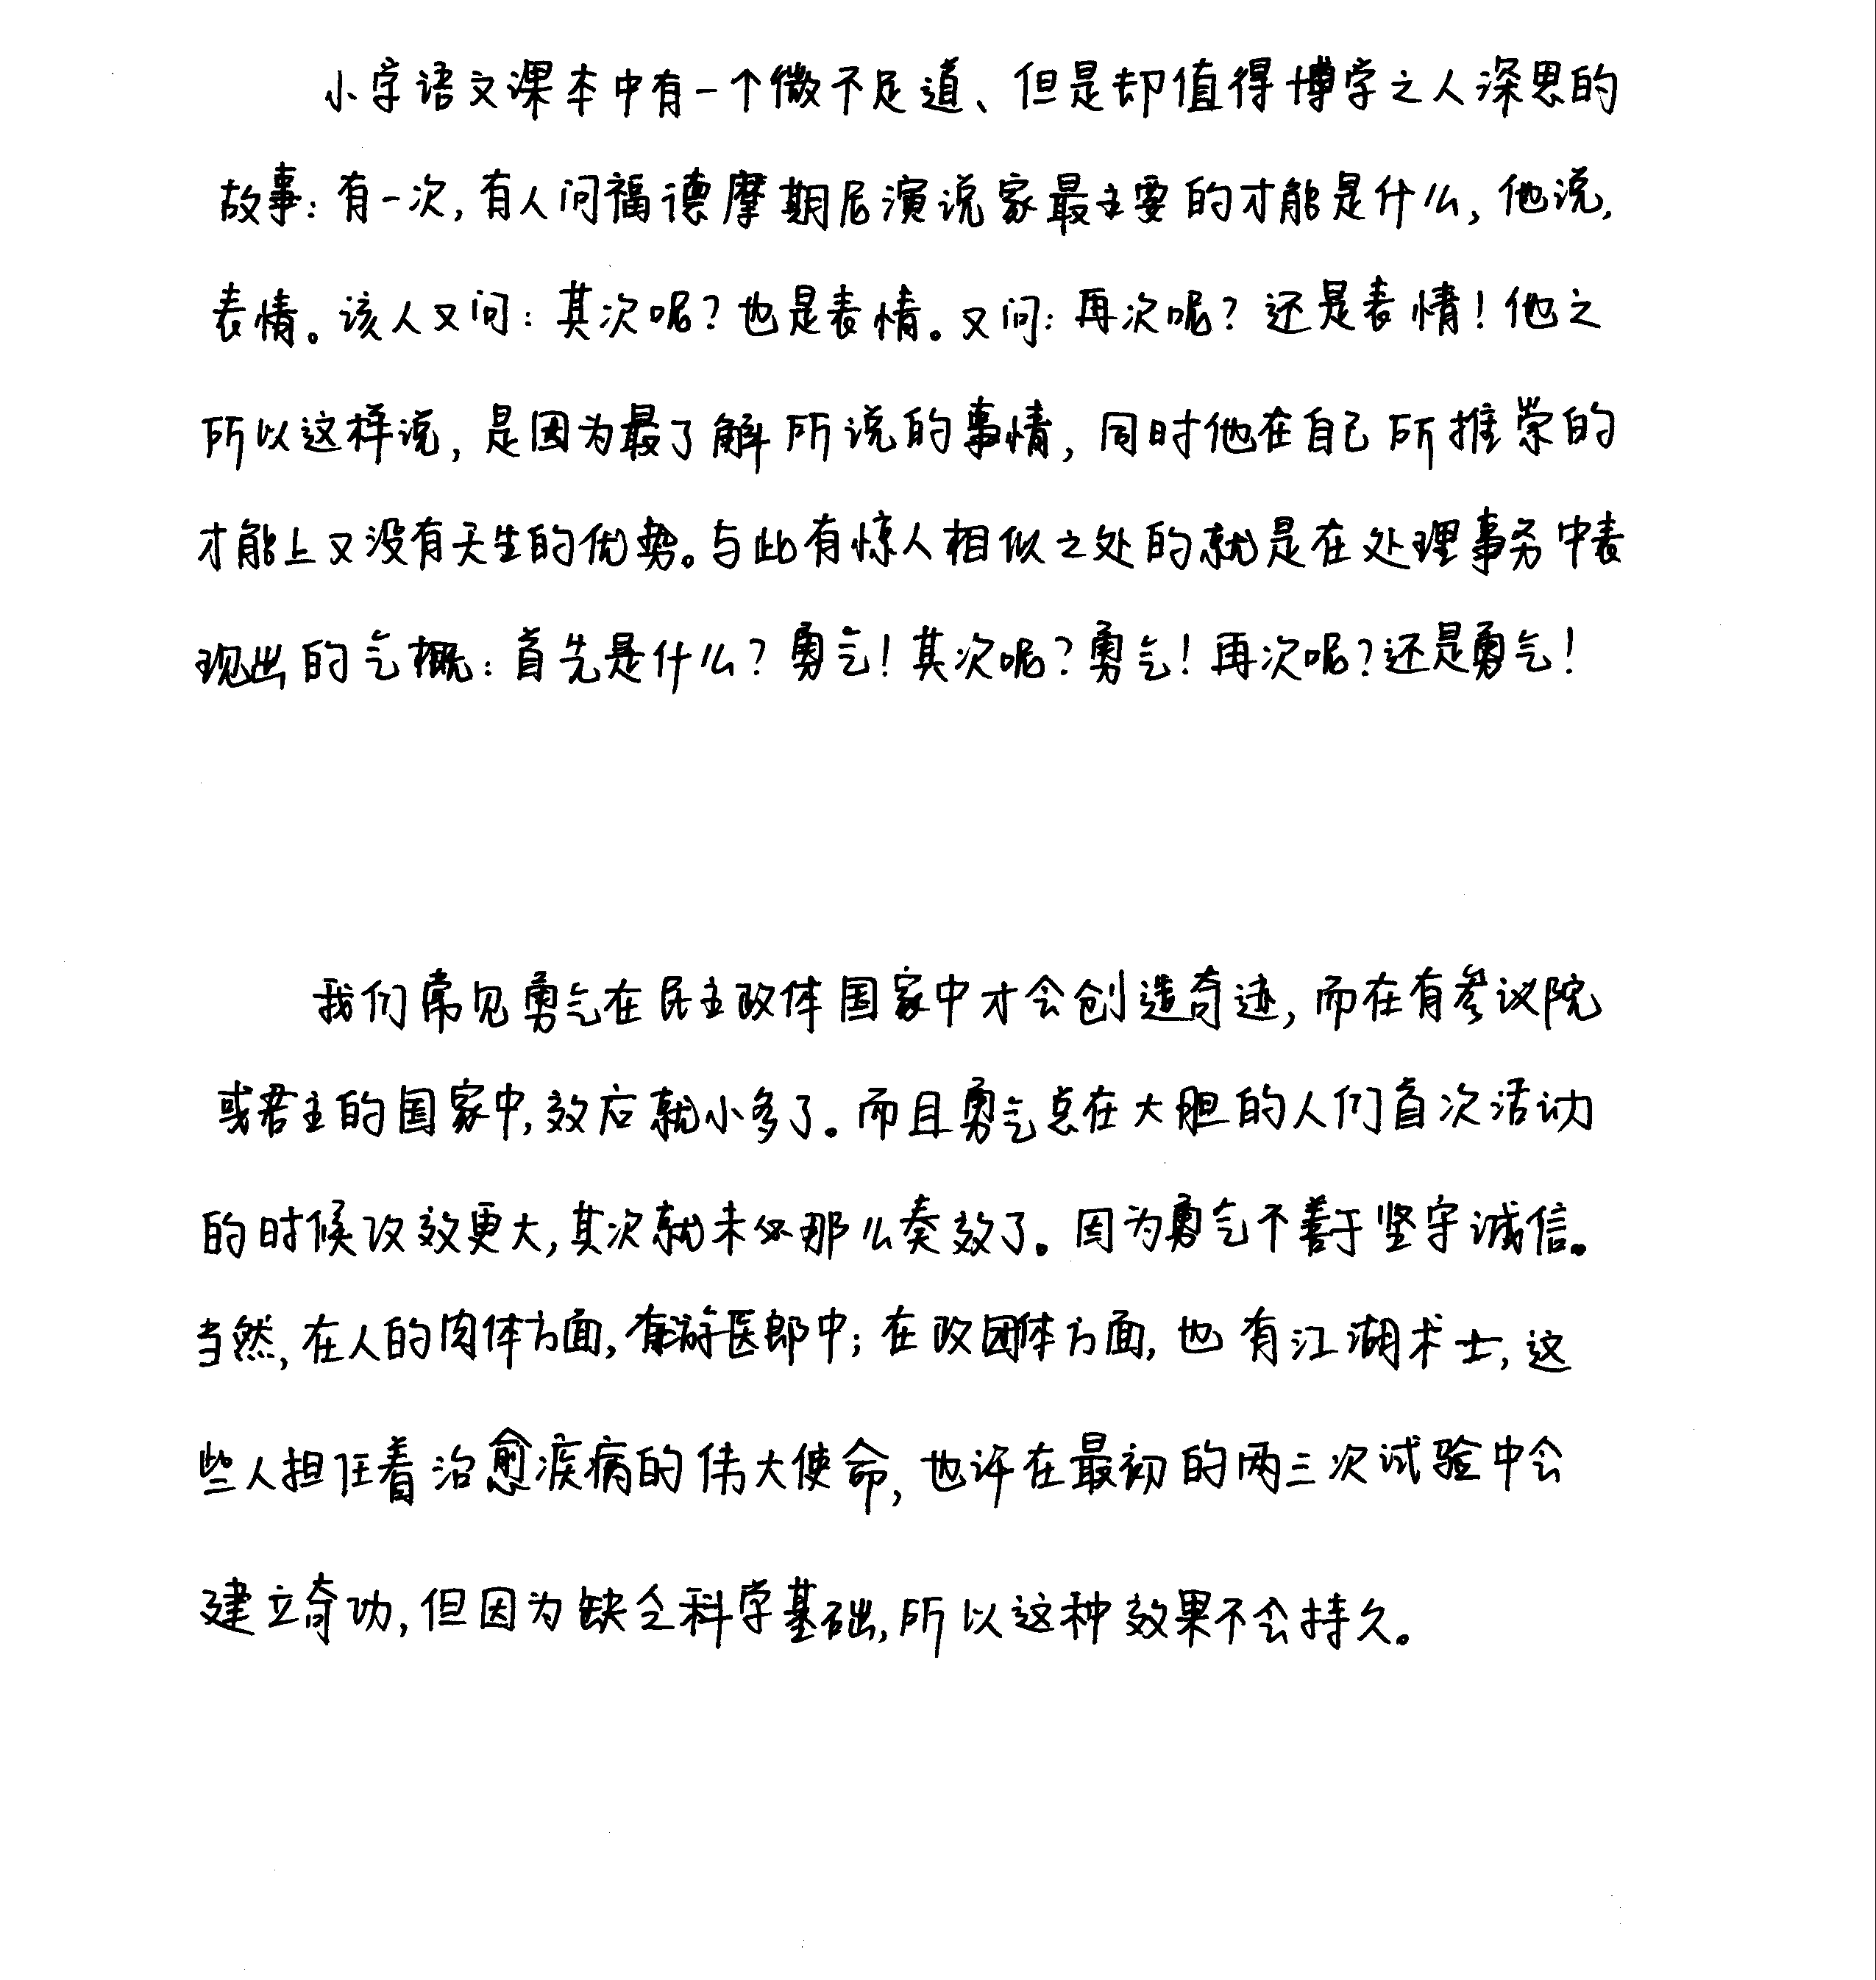 小学语文课本中有一个微不足道、但是却值得博学之人深思的
故事：有一次，有人问福德摩期尼演说家最主要的才能是什么，他说，
表情。该人又问：其次呢？也是表情。又问：再次呢？还是表情！他之
所以这样说，是因为最了解所说的事情，同时他在自己所推崇的
才能上又没有天生的优势。与此有惊人相似之处的就是在处理事务中表
现出的气概：首先是什么？勇气！其次呢？勇气！再次呢？还是勇气！
我们常见勇气在民主政体国家中才会创造奇迹，而在有参议院
或君主的国家中，效后就小多了。而且勇气总在大胆的人们首次活动
的时候攻效更大，其次就未必那么奏效了。因为勇气不善于坚守诚信。
当然，在人的肉体方面，有游医郎中；在政团体方面，也有江湖术士，这
些人担任着治愈疾病的伟大使命，也许在最初的两三次试验中会
建立奇功，但因为缺乏科学基础，所以这种效果不会持久。